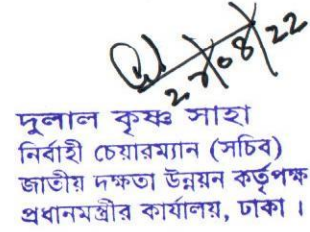 ২৮/০৪/২২
দুলাল কৃষ্ণ সাহা
নির্বাহী চেয়ারম্যান (সচিব)
জাতীয় দক্ষতা উন্নয়ন কর্তৃপক্ষ
প্রধানমন্ত্রীর কার্যালয়, ঢাকা ।